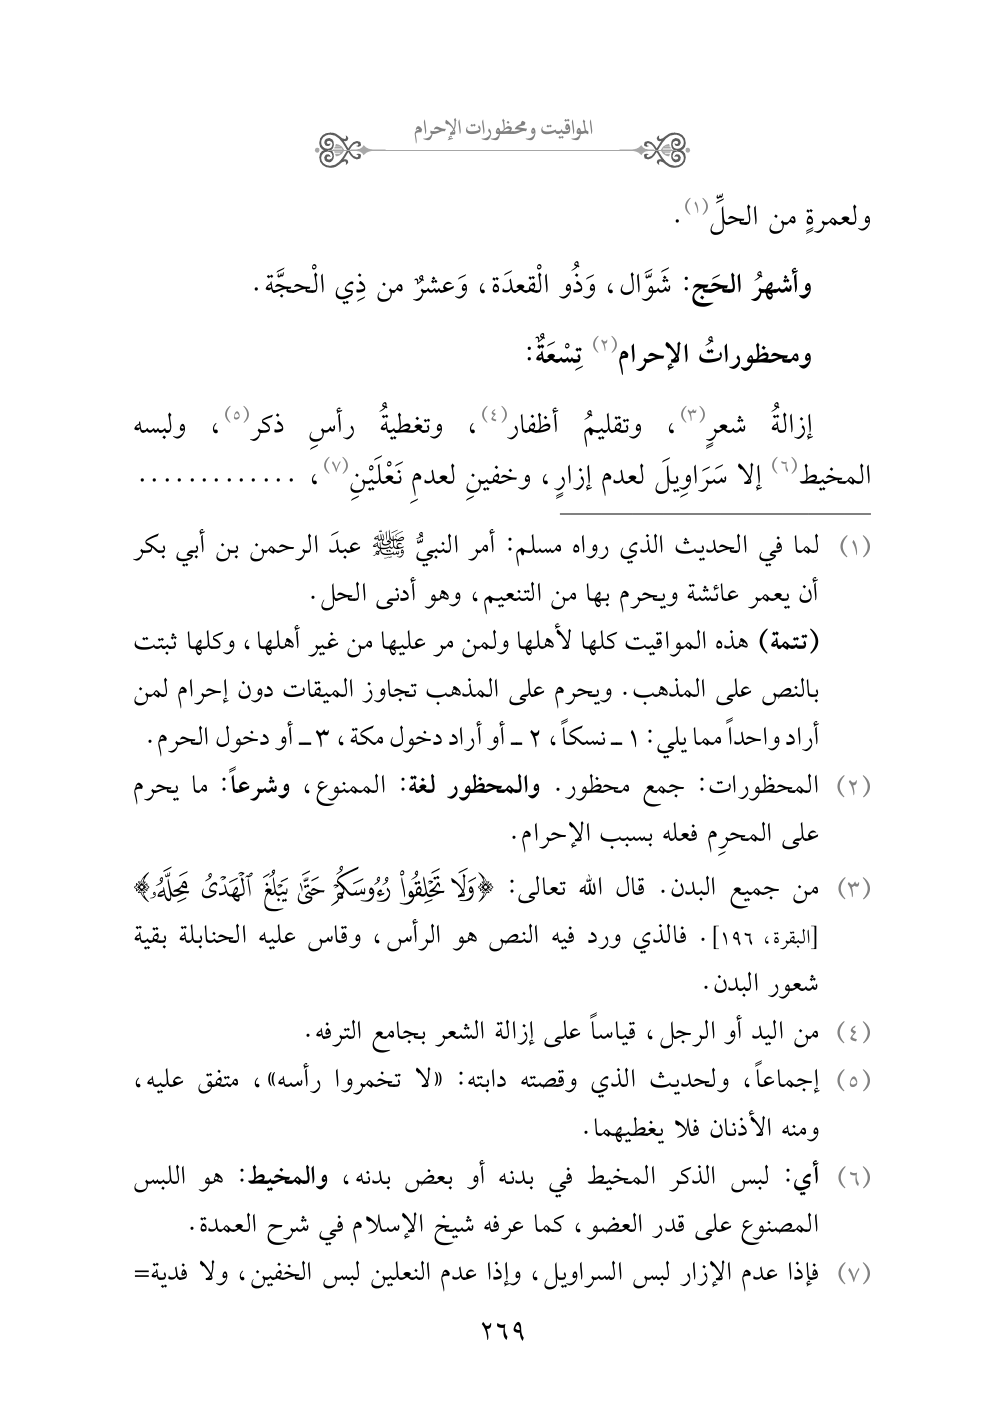 المواقيت ومحظورات الإحرام
ولعمرةٍ من الحلِّ(١).
وأشهرُ الحَج: شَوَّال، وَذُو الْقعدَة، وَعشرٌ من ذِي الْحجَّة.
ومحظوراتُ الإحرام(٢) تِسْعَةٌ:
إزالةُ شعرٍ(٣)، وتقليمُ أظفار(٤)، وتغطيةُ رأسِ ذكر(٥)، ولبسه
المخيط(٦) إلا سَرَاوِيلَ لعدم إزارٍ، وخفينِ لعدمِ نَعْلَيْنِ(٧)، .............
(١) لما في الحديث الذي رواه مسلم: أمر النبيُّ ﷺ عبدَ الرحمن بن أبي بكر
أن يعمر عائشة ويحرم بها من التنعيم، وهو أدنى الحل.
(تتمة) هذه المواقيت كلها لأهلها ولمن مر عليها من غير أهلها، وكلها ثبتت
بالنص على المذهب. ويحرم على المذهب تجاوز الميقات دون إحرام لمن
أراد واحداً مما يلي: ١ ـ نسكاً، ٢ ـ أو أراد دخول مكة، ٣ ـ أو دخول الحرم.
(٢) المحظورات: جمع محظور. والمحظور لغة: الممنوع، وشرعاً: ما يحرم
على المحرِم فعله بسبب الإحرام.
(٣) من جميع البدن. قال الله تعالى: ﴿وَلَا تَحْلِقُوا۟ رُءُوسَكُمْ حَتَّىٰ يَبْلُغَ ٱلْهَدْىُ مَحِلَّهُۥ﴾
[البقرة، ١٩٦]. فالذي ورد فيه النص هو الرأس، وقاس عليه الحنابلة بقية
شعور البدن.
(٤) من اليد أو الرجل، قياساً على إزالة الشعر بجامع الترفه.
(٥) إجماعاً، ولحديث الذي وقصته دابته: «لا تخمروا رأسه»، متفق عليه،
ومنه الأذنان فلا يغطيهما.
(٦) أي: لبس الذكر المخيط في بدنه أو بعض بدنه، والمخيط: هو اللبس
المصنوع على قدر العضو، كما عرفه شيخ الإسلام في شرح العمدة.
(٧) فإذا عدم الإزار لبس السراويل، وإذا عدم النعلين لبس الخفين، ولا فدية=
٢٦٩